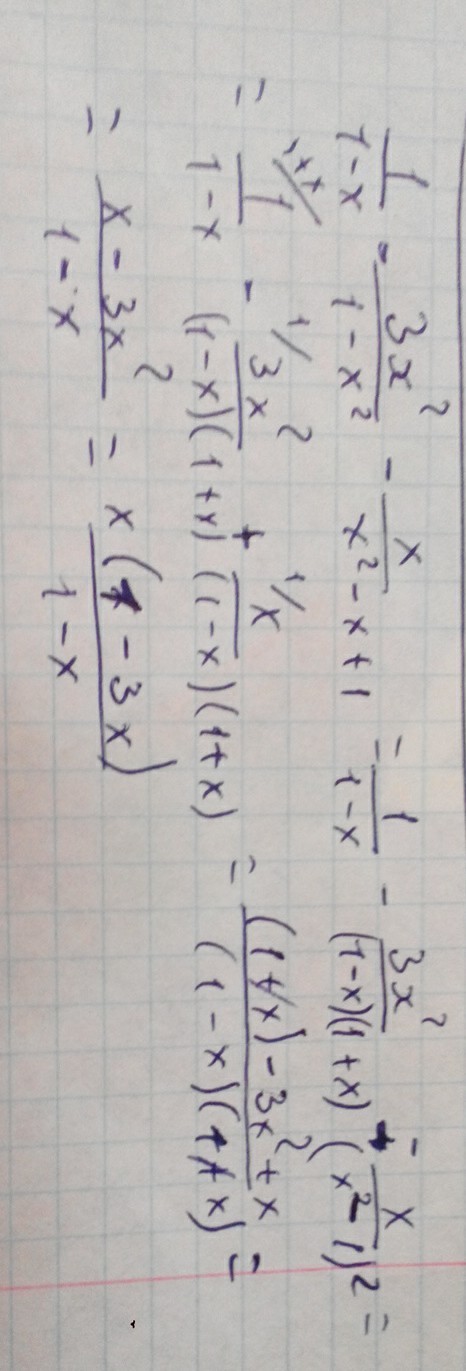 1/(1-x) - 3x²/(1-x²) - x/(x²-x+1) = 1/(1-x) - 3x²/((1-x)(1+x)) - x/(x²-1)² =
= 1/(1-x) - 3x²/((1-x)(1+x)) + x/((1-x)(1+x)) = ((1+x)-3x²+x)/((1-x)(1+x)) =
= (x-3x²)/(1-x) = x(1-3x)/(1-x)